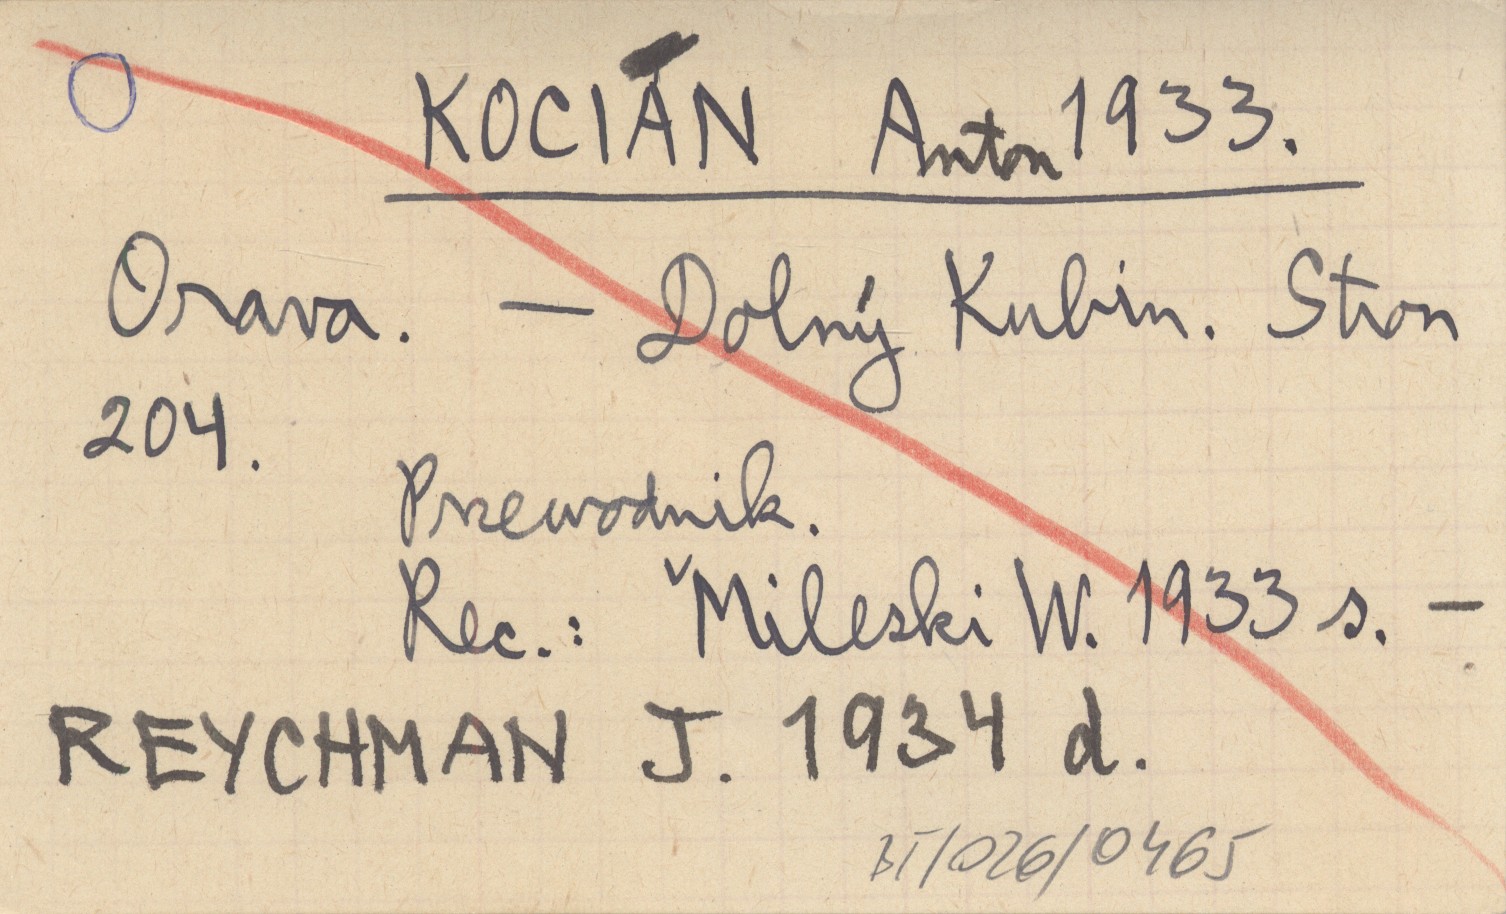 KOCIÁN Anton 1933.
Orava. — Dolný Kubin. Stron
204.
Przewodnik.
Rec.: Mileski W. 1933 s. —
REYCHMAN J. 1934 d.
BT/026/0465